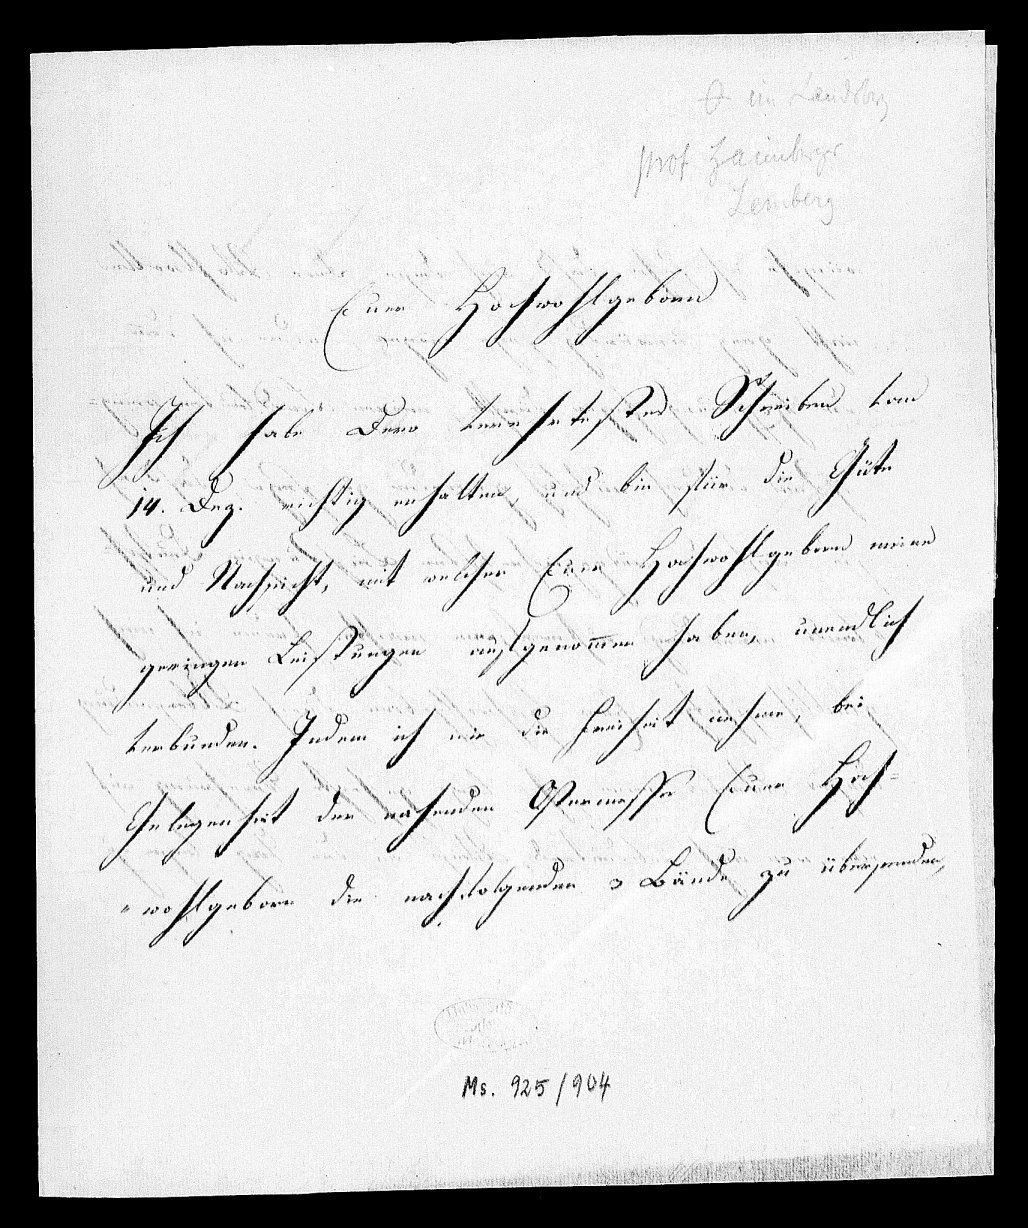 im Landsberg
prof Haimberger
Lemberg
Euer Hochwohlgeborn
Ich habe Dero verehrtestes Schreiben vom
14. Dez. richtig erhalten, und bin für die Güte
und Nachsicht, mit welcher Euer Hochwohlgeborn meine
geringen Leistungen aufgenom̄en haben, unendlich
verbunden. Indem ich mir die Freiheit nehme, bei
Gelegenheit der nahenden Ostermesse Euer Hoch=
=wohlgeborn die nachfolgenden 3 Bände zu übersenden,
Ms. 925/904